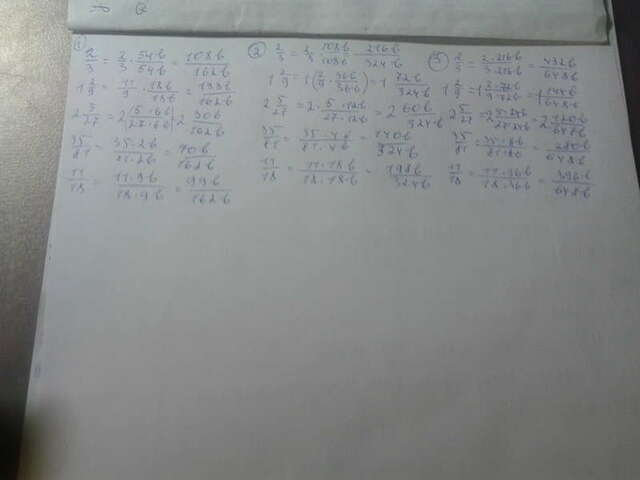 ①
2/3 = 2/3 · 54b/54b = 108b/162b
1 2/9 = 11/9 · 18b/18b = 198b/162b
2 5/27 = 2(5·6b/27·6b) = 2 30b/162b
35/81 = 35·2b/81·2b = 70b/162b
11/18 = 11·9b/18·9b = 99b/162b
②
2/3 = 2/3 · 108b/108b = 216b/324b
1 2/9 = 1(2/9 · 36b/36b) = 1 72b/324b
2 5/27 = 2·5·12b/27·12b = 2 60b/324b
35/81 = 35·4b/81·4b = 140b/324b
11/18 = 11·18b/18·18b = 198b/324b
③
2/3 = 2·216b/3·216b = 432b/648b
1 2/9 = 1 2·72b/9·72b = 1 144b/648b
2 5/27 = 2 5·24b/27·24b = 2 120b/648b
35/81 = 35·8b/81·8b = 280b/648b
11/18 = 11·36b/18·36b = 396b/648b